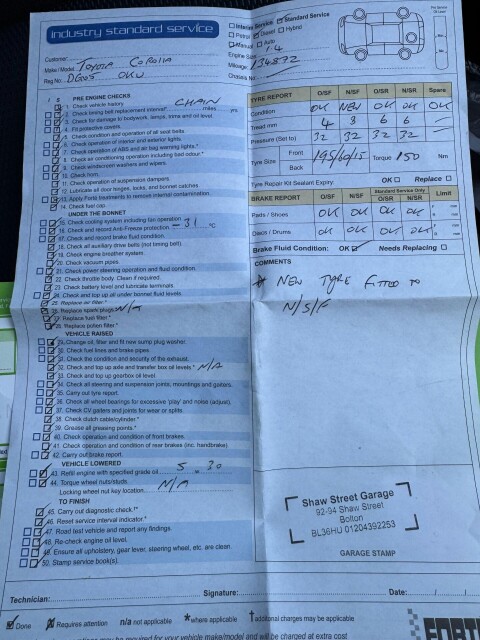 industry standard service
Interim Service Standard Service
Petrol Diesel Hybrid
Manual Auto
Engine Size 1.4
Customer:
Make / Model: TOYOTA COROLLA
Mileage: 134832
Reg No: DG05 OKU
Chassis No:
PRE ENGINE CHECKS
1. Check vehicle history CHAIN
2. Check timing belt replacement interval* miles yrs
3. Check for damage to bodywork, lamps, trims and oil level
4. Fit protective covers
5. Check condition and operation of all seat belts
6. Check operation of interior and exterior lights.
7. Check operation of ABS and air bag warning lights.*
8. Check air conditioning operation including bad odour.*
9. Check windscreen washers and wipers.
10. Check horn.
11. Check operation of suspension dampers
12. Lubricate all door hinges, locks, and bonnet catches
13. Apply Forté treatment to remove internal contamination.
14. Check fuel cap.
UNDER THE BONNET
15. Check cooling system including fan operation
16. Check and record Anti Freeze protection - 31 °C
17. Check and record brake fluid condition.
18. Check all auxiliary drive belts (not timing belt).
19. Check engine breather system.
20. Check vacuum pipes.
21. Check power steering operation and fluid condition.
22. Check throttle body. Clean if required.
23. Check battery level and lubricate terminals.
24. Check and top up all under bonnet fluid levels.
25. Replace air filter.*
26. Replace spark plugs. N/A
27. Replace fuel filter.*
28. Replace pollen filter.*
VEHICLE RAISED
29. Change oil, filter and fit new sump plug washer.
30. Check fuel lines and brake pipes
31. Check the condition and security of the exhaust.
32. Check and top up axle and transfer box oil levels.* N/A
33. Check and top up gearbox oil level.
34. Check all steering and suspension joints, mountings and gaiters.
35. Carry out tyre report.
36. Check all wheel bearings for excessive 'play' and noise (adjust).
37. Check CV gaiters and joints for wear or splits.
38. Check clutch cable/cylinder.*
39. Grease all greasing points.*
40. Check operation and condition of front brakes.
41. Check operation and condition of rear brakes (inc. handbrake)
42. Carry out brake report.
VEHICLE LOWERED
43. Refill engine with specified grade oil 5 w 30
44. Torque wheel nuts/studs.
Locking wheel nut key location N/A
TO FINISH
45. Carry out diagnostic check.†*
46. Reset service interval indicator.*
47. Road test vehicle and report any findings.
48. Re-check engine oil level.
49. Ensure all upholstery, gear lever, steering wheel, etc. are clean.
50. Stamp service book(s).
TYRE REPORT O/SF N/SF O/SR N/SR Spare
Condition OK NEW OK OK OK
Tread mm 4 8 6 6
Pressure (Set to) 32 32 32 32
Tyre Size Front 195/60/15 Torque 150 Nm
Back
Tyre Repair Kit Sealant Expiry: OK Replace
Standard Service Only
BRAKE REPORT O/SF N/SF O/SR N/SR Limit
Pads / Shoes OK OK OK OK mm
Discs / Drums OK OK OK OK mm
Brake Fluid Condition: OK Needs Replacing
COMMENTS
* NEW TYRE FITTED TO
N/S/F
Shaw Street Garage
92-94 Shaw Street
Bolton
BL36HU 01204392253
GARAGE STAMP
Technician: Signature: Date: / /
Done Requires attention n/a not applicable * where applicable † additional charges may be applicable